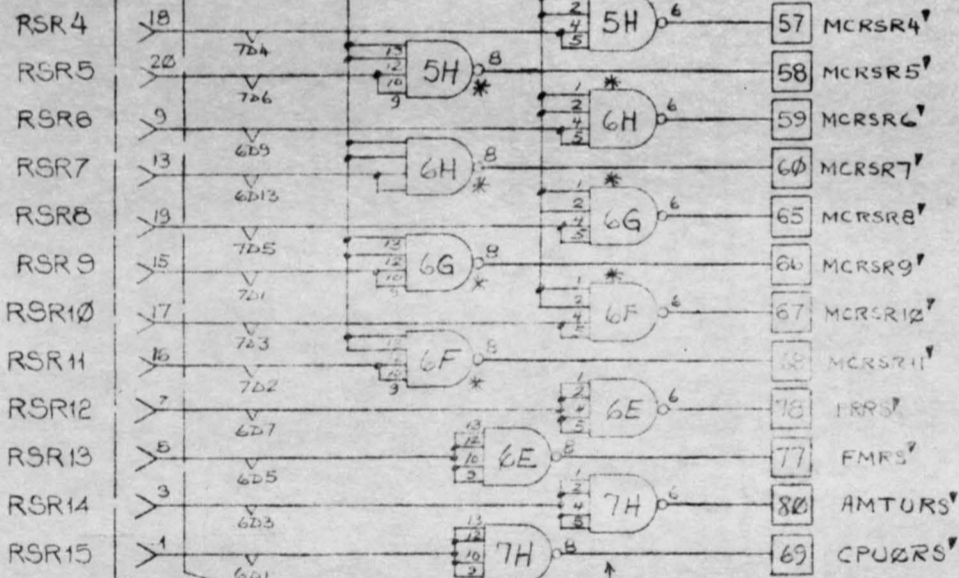 RSR4 18 7D4 2 4 5 5H 6 57 MCRSR4'
RSR5 20 7D6 13 12 10 9 5H 8 * 58 MCRSR5'
RSR6 9 6D9 1 2 4 5 6H 6 * 59 MCRSR6'
RSR7 13 6D13 6H 8 * 60 MCRSR7'
RSR8 19 7D5 1 2 4 5 6G 6 * 65 MCRSR8'
RSR9 15 7D1 13 12 10 6G 8 * 66 MCRSR9'
RSR10 17 7D3 1 2 4 5 6F 6 * 67 MCRSR10'
RSR11 16 7D2 10 9 6F 8 * 68 MCRSR11'
RSR12 7 6D7 1 2 4 5 6E 6 78
RSR13 5 6D5 13 12 10 6E 8 77 FMRS'
RSR14 3 6D3 1 4 7H 6 80 AMTURS'
RSR15 1 6D1 13 12 10 7H 8 69 CPU0RS'